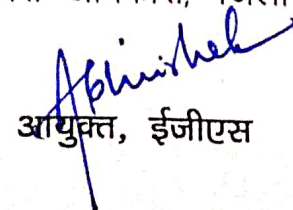 Abhishek
आयुक्त, ईजीएस